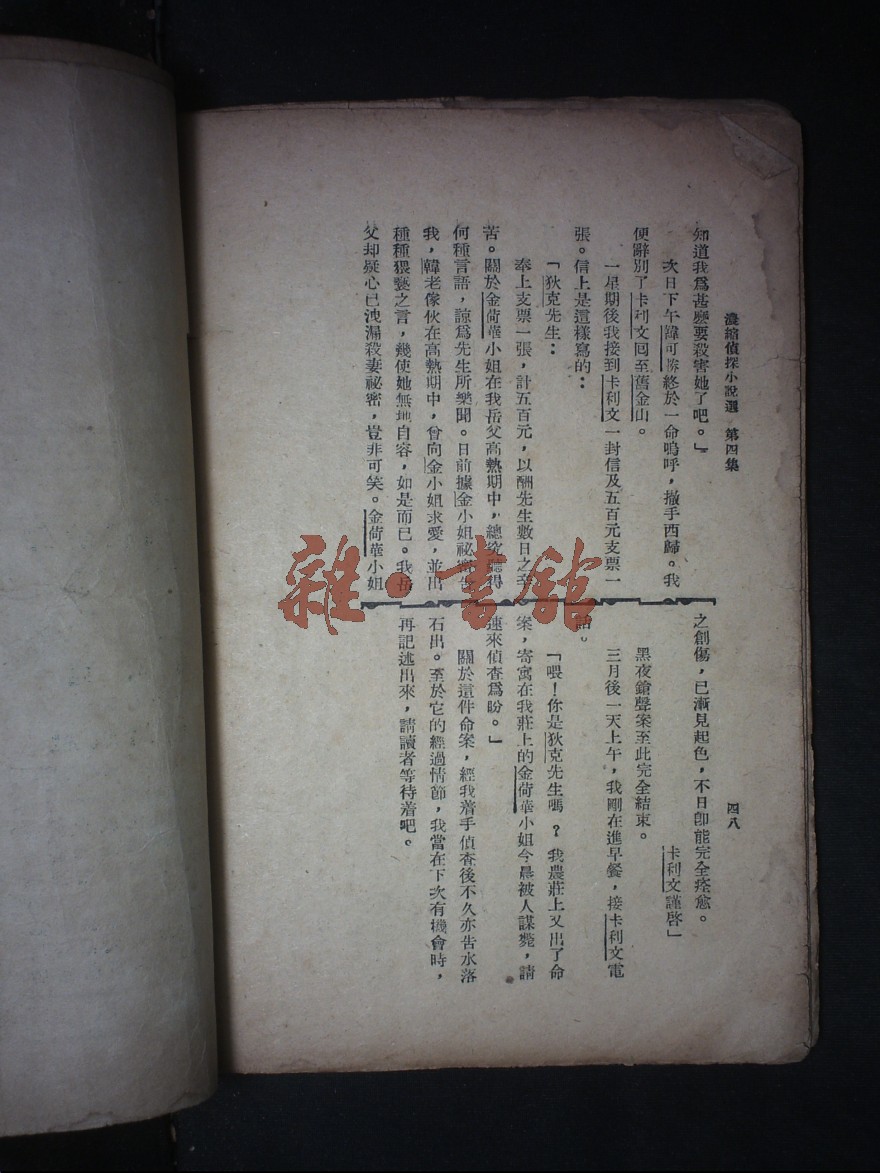 濃縮偵探小說選　第四集
四八
知道我爲甚麼要殺害她了吧。」
次日下午韓可勝終於一命嗚呼，撤手西歸。我
便辭別了卡利文囘至舊金山。
一星期後我接到卡利文一封信及五百元支票一
張。信上是這樣寫的：
「狄克先生：
奉上支票一張，計五百元，以酬先生數日之辛
苦。關於金荷華小姐在我岳父高熱期中，總究聽得
何種言語，諒爲先生所樂聞。日前據金小姐祕密告
我，韓老傢伙在高熱期中，曾向金小姐求愛，並出
種種猥褻之言，幾使她無地自容，如是而已。我岳
父却疑心已洩漏殺妻祕密，豈非可笑。金荷華小姐
之創傷，已漸見起色，不日卽能完全痊愈。
卡利文謹啓」
黑夜鎗聲案至此完全結束。
三月後一天上午，我剛在進早餐，接卡利文電
話。
「喂！你是狄克先生嗎？我農莊上又出了命
案，寄寓在我莊上的金荷華小姐今晨被人謀斃，請
速來偵查爲盼。」
關於這件命案，經我着手偵查後不久亦吿水落
石出。至於它的經過情節，我當在下次有機會時，
再記述出來，請讀者等待着吧。
雜·書館